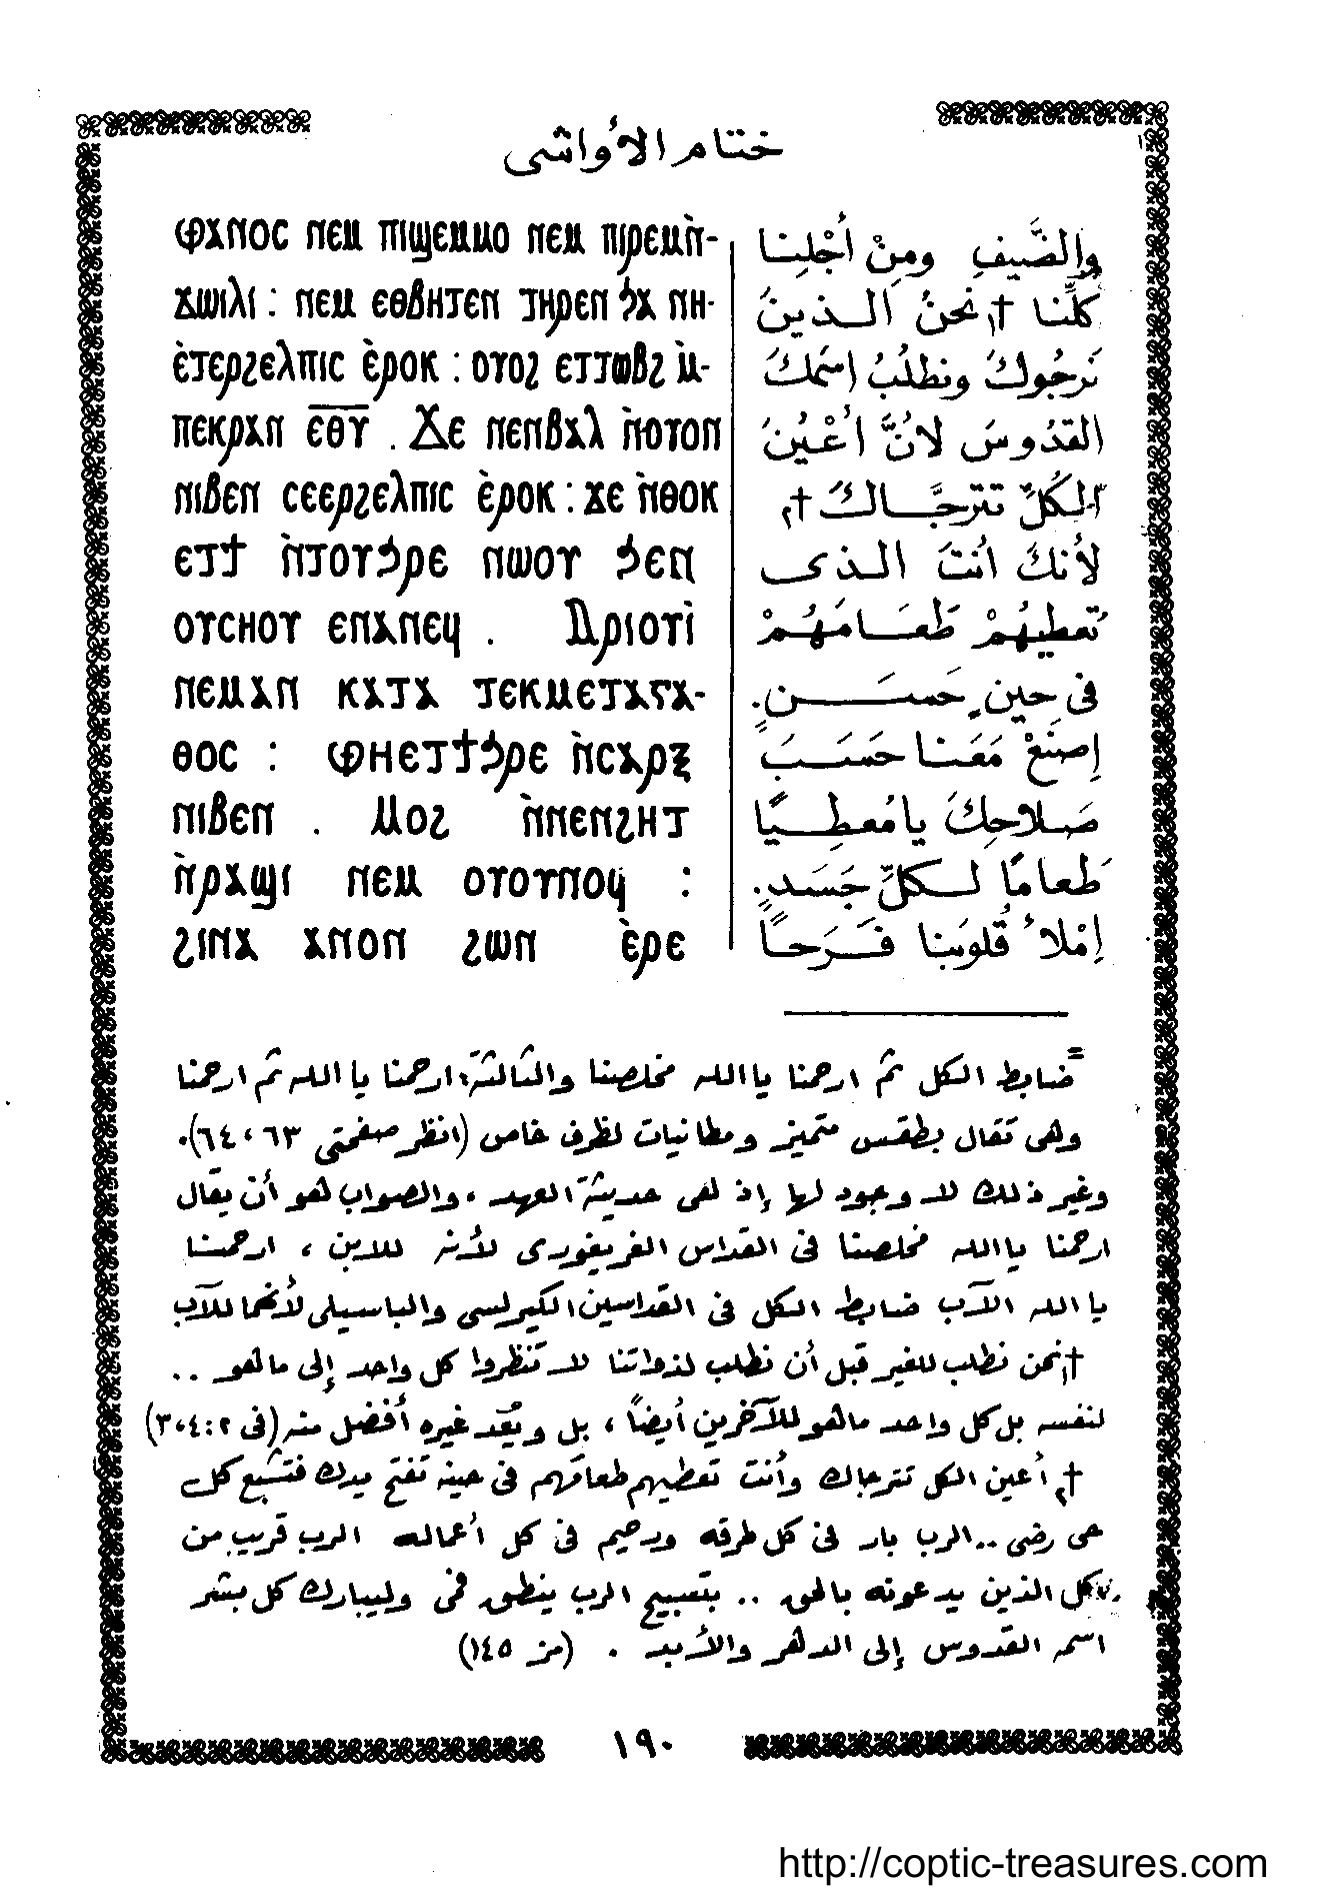 ختام الأواشى
ⲫⲁⲛⲟⲥ ⲛⲉⲙ ⲡⲓϣⲉⲙⲙⲟ ⲛⲉⲙ ⲡⲓⲣⲉⲙⲛ̀-
ϫⲱⲓⲗⲓ : ⲛⲉⲙ ⲉⲑⲃⲏⲧⲉⲛ ⲧⲏⲣⲉⲛ ϧⲁ ⲛⲏ-
ⲉ̀ⲧⲉⲣϩⲉⲗⲡⲓⲥ ⲉ̀ⲣⲟⲕ : ⲟⲩⲟϩ ⲉⲧⲧⲱⲃϩ ⲙ̀-
ⲡⲉⲕⲣⲁⲛ ⲉ̅ⲑ̅ⲩ̅ . Ϫⲉ ⲛⲉⲛⲃⲁⲗ ⲛ̀ⲟⲩⲟⲛ
ⲛⲓⲃⲉⲛ ⲥⲉⲉⲣϩⲉⲗⲡⲓⲥ ⲉ̀ⲣⲟⲕ : ϫⲉ ⲛ̀ⲑⲟⲕ
ⲉⲧϯ ⲛ̀ⲧⲟⲩϧⲣⲉ ⲛⲱⲟⲩ ϧⲉⲛ
ⲟⲩⲥⲏⲟⲩ ⲉⲛⲁⲛⲉϥ . Ⲁⲣⲓⲟⲩⲓ̀
ⲛⲉⲙⲁⲛ ⲕⲁⲧⲁ ⲧⲉⲕⲙⲉⲧⲁⲅⲁ-
ⲑⲟⲥ : ⲫⲏⲉⲧϯϧⲣⲉ ⲛ̀ⲥⲁⲣⲝ
ⲛⲓⲃⲉⲛ . Ⲙⲟϩ ⲛ̀ⲛⲉⲛϩⲏⲧ
ⲛ̀ⲣⲁϣⲓ ⲛⲉⲙ ⲟⲩⲟⲩⲛⲟϥ :
ϩⲓⲛⲁ ⲁⲛⲟⲛ ϩⲱⲛ ⲉ̀ⲣⲉ
والضَّيفِ ومِنْ أَجْلِنَا
كلِّنا †١ نحنُ الذينَ
نَرجُوكَ ونطلُبُ اسمَكَ
القدُوسَ لانَّ أَعْيُنَ
الكُلِّ تترجَّاكَ †٢
لأنكَ أنتَ الذى
تُعطِيهُمْ طَعَامَهُمْ
فى حِينٍ حَسَنٍ.
إصنَعْ مَعَنا حَسَبَ
صَلاحِكَ يا مُعطِيًا
طَعامًا لكلِّ جَسَدٍ.
إمْلأ قُلوبَنا فَرَحاً
= ضابط الكل ثم ارحمنا يا الله مخلصنا والثالثة: ارحمنا يا الله ثم ارحمنا
وهى تقال بطقس متميز ومطانيات لظرف خاص (انظر صفحتى ٦٣ ، ٦٤).
وغير ذلك لا وجود لها إذ هى حديثة العهد ، والصواب هو أن يقال
ارحمنا يا الله مخلصنا فى القداس الغريغورى لأنه للابن ، ارحمنا
يا الله الآب ضابط الكل فى القداسين الكيرلسى والباسيلى لأنهما للآب
†١ نحن نطلب للغير قبل أن نطلب لذواتنا لا تنظروا كل واحد إلى ما هو ..
لنفسه بل كل واحد ما هو للآخرين أيضاً ، بل ويُعد غيره أفضل منه (فى ٢ : ٤ ، ٣)
†٢ أعين الكل تترجاك وأنت تعطيهم طعامهم فى حينه تفتح يدك فتشبع كل
حى رضى .. الرب بار فى كل طرقه ورحيم فى كل أعماله الرب قريب من
كل الذين يدعونه بالحق .. بتسبيح الرب ينطق فمى وليبارك كل بشر
اسمه القدوس إلى الدهر والأبد . (مز ١٤٥)
١٩٠
http://coptic-treasures.com